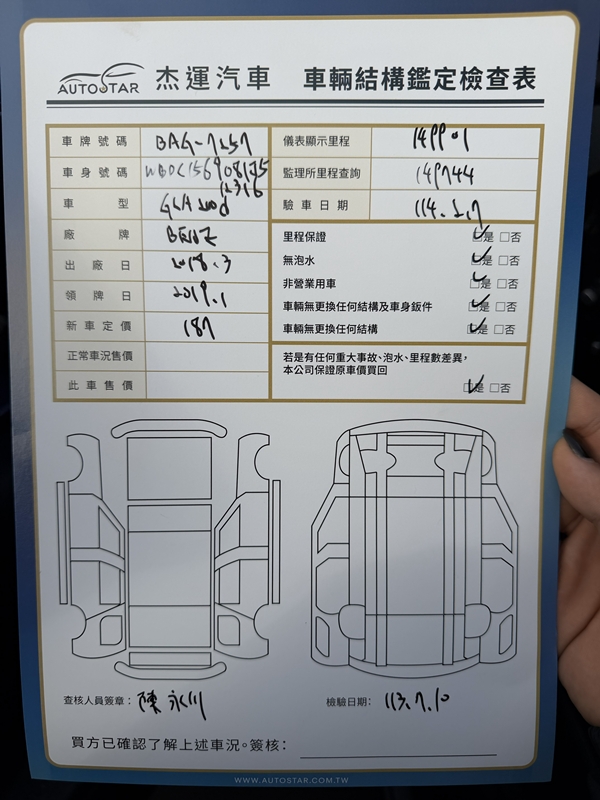 AUTOSTAR 杰運汽車 車輛結構鑑定檢查表
車牌號碼 BAG-7257
車身號碼
車型 GLA200d
廠牌 BENZ
出廠日 2018.3
領牌日 2019.1
新車定價 187
正常車況售價
此車售價
儀表顯示里程
監理所里程查詢 149744
驗車日期
里程保證 ☑是 □否
無泡水 ☑是 □否
非營業用車 ☑是 □否
車輛無更換任何結構及車身鈑件 ☑是 □否
車輛無更換任何結構 ☑是 □否
若是有任何重大事故、泡水、里程數差異，
本公司保證原車價買回
☑是 □否
查核人員簽章：陳永川
檢驗日期： 113.7.10
買方已確認了解上述車況。簽核：
WWW.AUTOSTAR.COM.TW